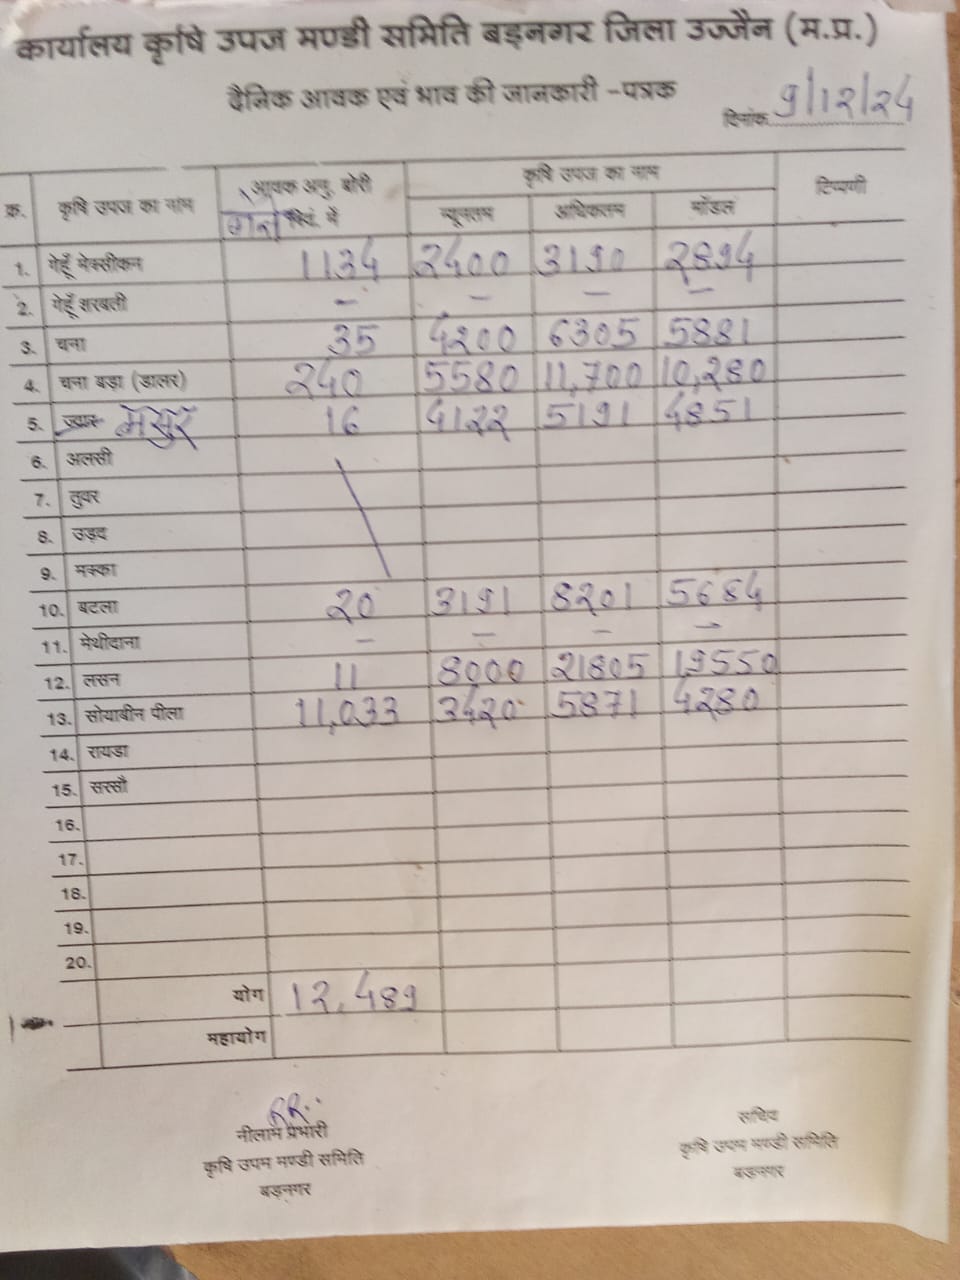 कार्यालय कृषि उपज मण्डी समिति बड़नगर जिला उज्जैन (म.प्र.)
दैनिक आवक एवं भाव की जानकारी -पत्रक
दिनांक 9/12/24
क्र. कृषि उपज का नाम आवक अनु. बोरी क्विं. में कृषि उपज का नाम टिप्पणी
न्यूनतम अधिकतम मॉडल
1. गेहूँ मेक्सीकन 1134 2400 3190 2894
2. गेहूँ शरबती - - - -
3. चना 35 4200 6305 5881
4. चना बड़ा (डालर) 240 5580 11,700 10,280
5. ज्वार मसुर 16 4122 5191 4851
6. अलसी
7. तुवर
8. उड़द
9. मक्का
10. बटला 20 3191 8201 5684
11. मेथीदाना - - - -
12. लसन 11 8000 21805 19550
13. सोयाबीन पीला 11,033 3420 5871 4280
14. रायडा
15. सरसौ
16.
17.
18.
19.
20.
योग 12,489
महायोग
नीलाम प्रभारी
कृषि उपम मण्डी समिति
बड़नगर
सचिव
कृषि उपम मण्डी समिति
बड़नगर